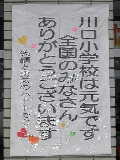 川口小学校は元気です
全国のみなさん
ありがとうございます